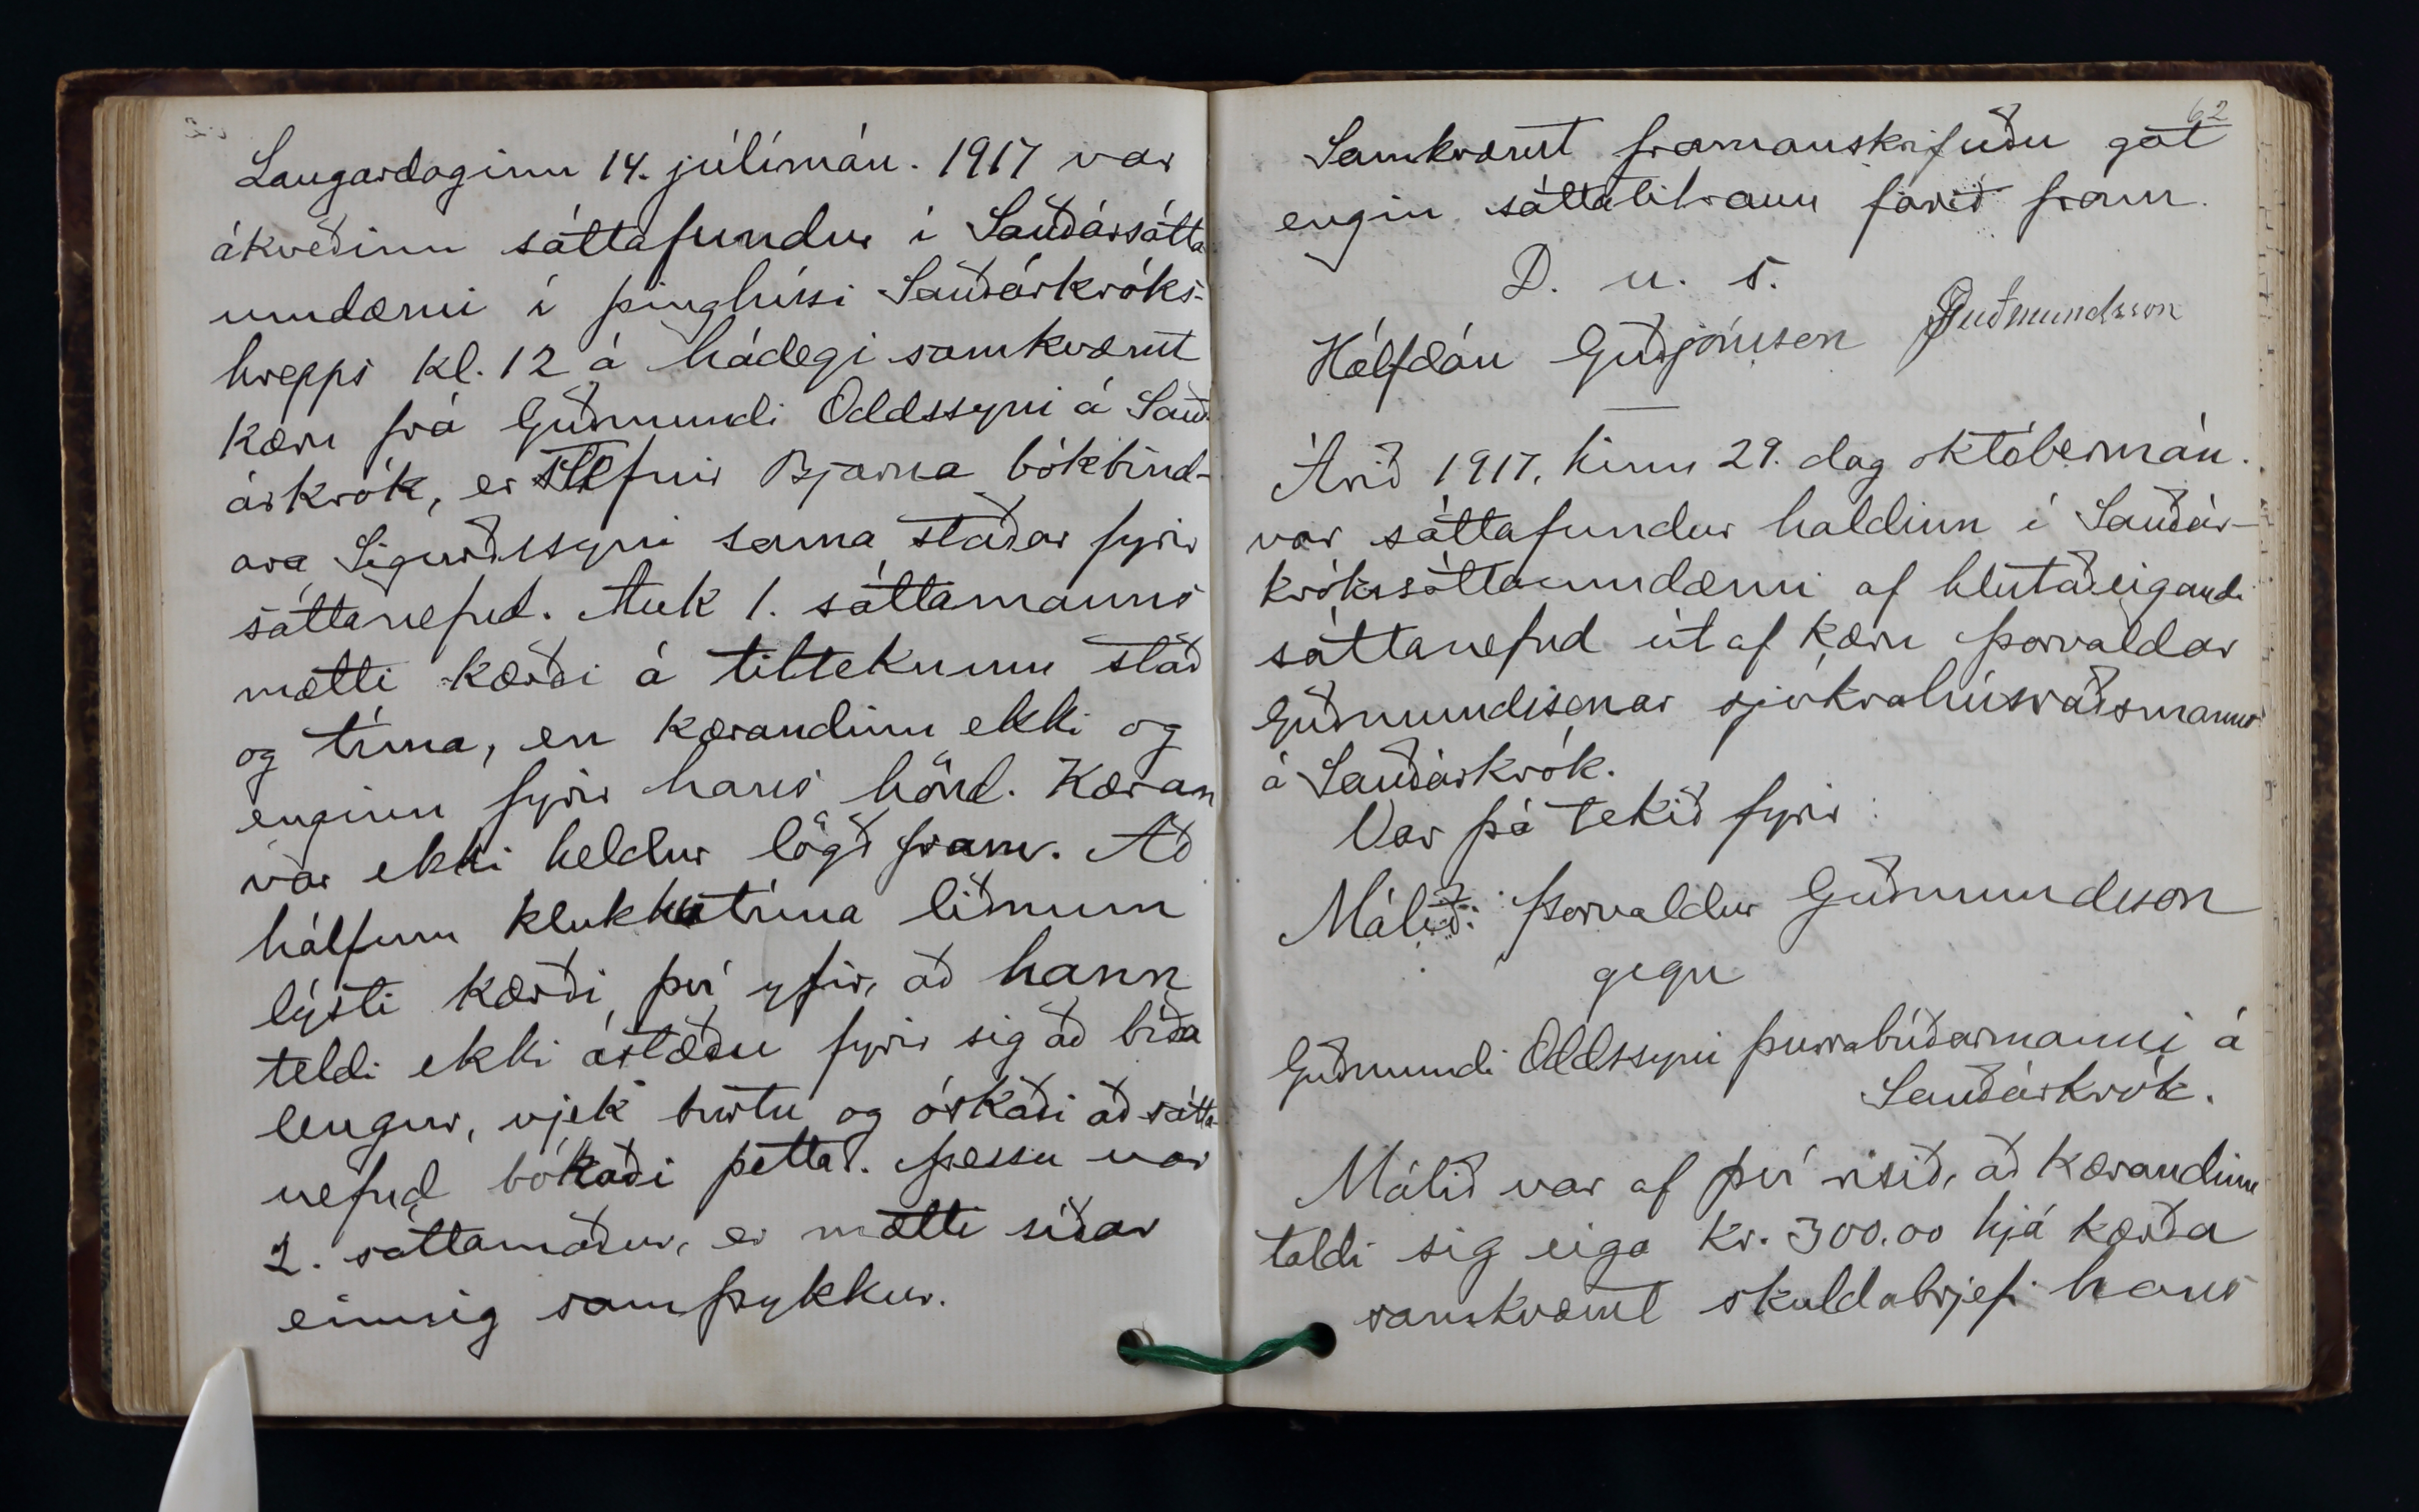 Laugardaginn 14. júlímán. 1917 var
ákveðinn sáttafundur í Sauðársátta
umdæmi í þinghúsi Sauðárkróks-
hrepps kl. 12 á hádegi samkvæmt
kæru frá Guðmundi Oddssyni á Sauð-
árkrók, er stefnir Bjarna bókbind-
ara Sigurðssyni sama staðar fyrir
sáttanefnd. Auk 1. sáttamanns
mætti kærði á tilteknum stað
og tíma, en kærandinn ekki og
enginn fyrir hans hönd. Kæran
var ekki heldur lögð fram. Að
hálfum klukkutíma liðnum
lýsti kærði því yfir, að hann
teldi ekki ástæðu fyrir sig að bíða
lengur, vjek burtu og óskaði að sátta-
nefnd bókaði þetta. Þessu var
2. sáttamaður, er mætti síðar
einnig samþykkur.
62
Samkvæmt framanskrifuðu gat
engin sáttatilraun farið fram.
D. u. s.
Hálfdán Guðjónsson Guðmundsson
Árið 1917, hinn 29. dag októbermán.
var sáttafundur haldinn í Sauðár-
krókssáttaumdæmi af hlutaðeigandi
sáttanefnd út af kæru Þorvaldar
Guðmundssonar sjúkrahúsráðsmanns
á Sauðárkrók.
Var þá tekið fyrir:
Málið: Þorvaldur Guðmundsson
gegn
Guðmundi Oddssyni þurrabúðarmanni á
Sauðárkrók.
Málið var af því risið, að kærandinn
taldi sig eiga kr. 300.00 hjá kærða
samkvæmt skuldabrjefi hans